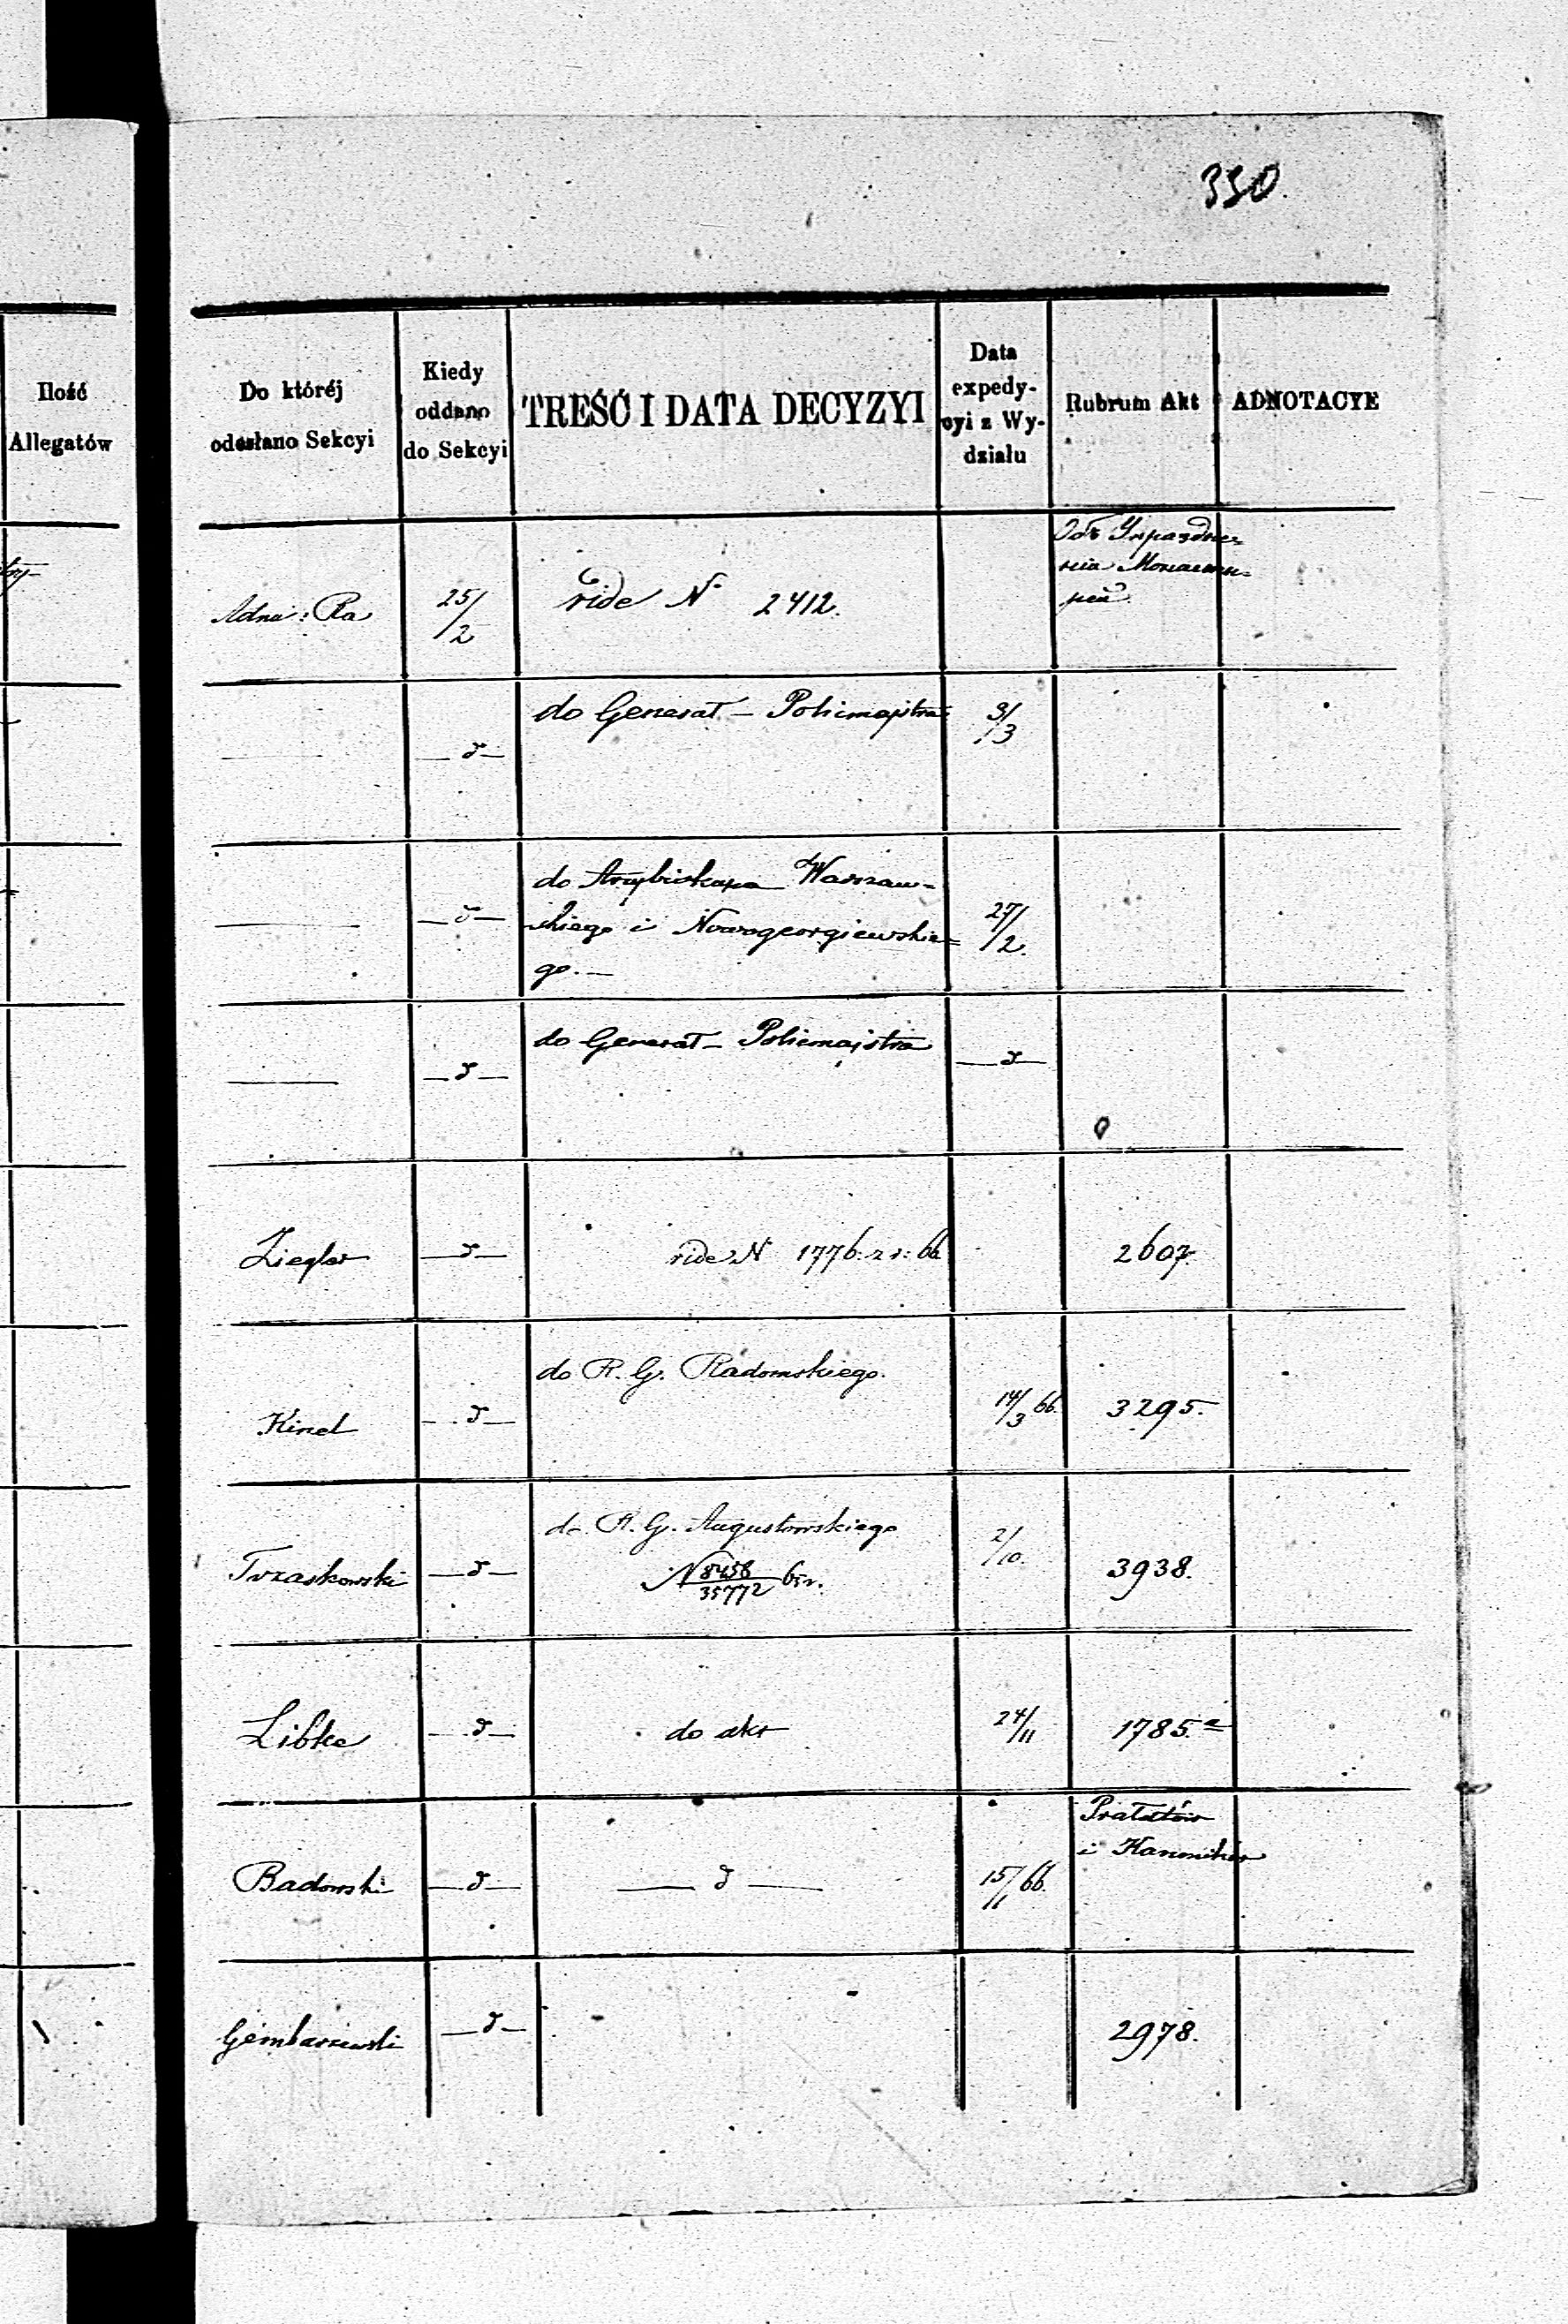 330.
Ilość
Allegatów
Do któréj
odesłano Sekcyi
Kiedy
oddano
do Sekcyi
TREŚĆ I DATA DECYZYI
Data
expedy-
cyi z Wy-
działu
Rubrum Akt
ADNOTACYE
Adm: Ra
25/2
vide N° 2412.
Объ Упраздне=
нiи Монасты=
рей
— d —
do Generał – Policmajstra
9/3
— d —
do Arcybiskupa Warszaw-
skiego i Nowogeorgiewskie=
go. —
27/2.
— d —
do Generał – Policmajstra
— d —
Ziegler
— d —
vide N 1776. z r: 66
2607.
Kinel
— d —
do R. G. Radomskiego.
14/3 66.
3295.
Trzaskowski
— d —
do R. G. Augustowskiego
N 8458/35772 65 r.
2/10.
3938.
Libke
— d —
do akt
24/11
1785.a
Badowski
— d —
— d —
15/1 66.
Prałatów
i Kanoników
Gembarzewski
— d —
2978.